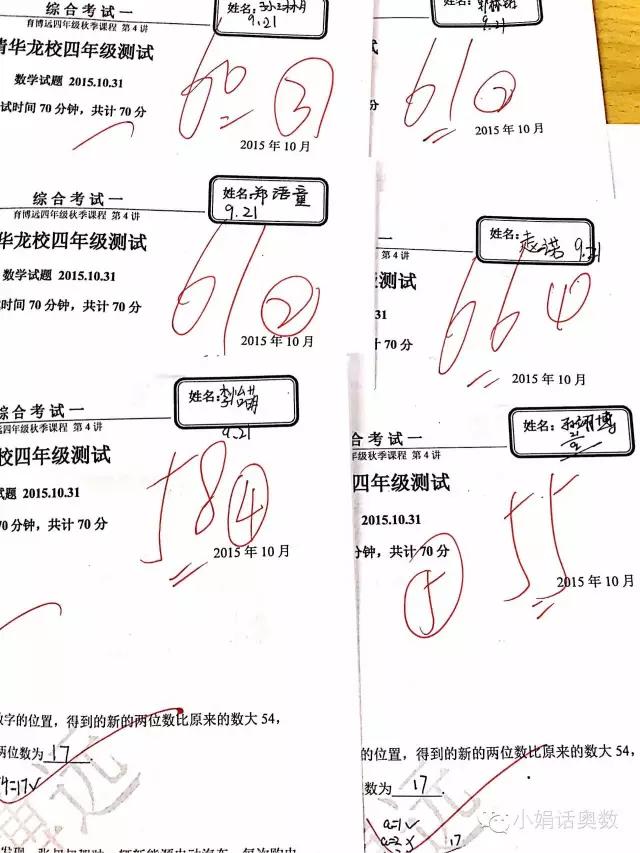 综合考试一
育博远四年级秋季课程 第4讲
姓名:
9.21
清华龙校四年级测试
数学试题 2015.10.31
试时间70分钟，共计70分
60
③
2015年10月
姓名:
9.21
第4讲
分
61
②
2015年10月
综合考试一
育博远四年级秋季课程 第4讲
姓名:郑语童
9.21
华龙校四年级测试
数学试题 2015.10.31
时间70分钟，共计70分
61
②
2015年10月
姓名:赵诺 9.21
第4讲
级测试
.31
计70分
66
④
2015年10月
综合考试一
远四年级秋季课程 第4讲
姓名:
9.21
校四年级测试
试题 2015.10.31
70分钟，共计70分
58
④
2015年10月
合考试一
年级秋季课程 第4讲
姓名:
9.21
四年级测试
2015.10.31
分钟，共计70分
55
⑤
2015年10月
数字的位置，得到的新的两位数比原来的数大54，
两位数为17.
=17✓
的位置，得到的新的两位数比原来的数大54，
数为 17 .
a=1✓
a=2× 17
博远
远
小娟话奥数